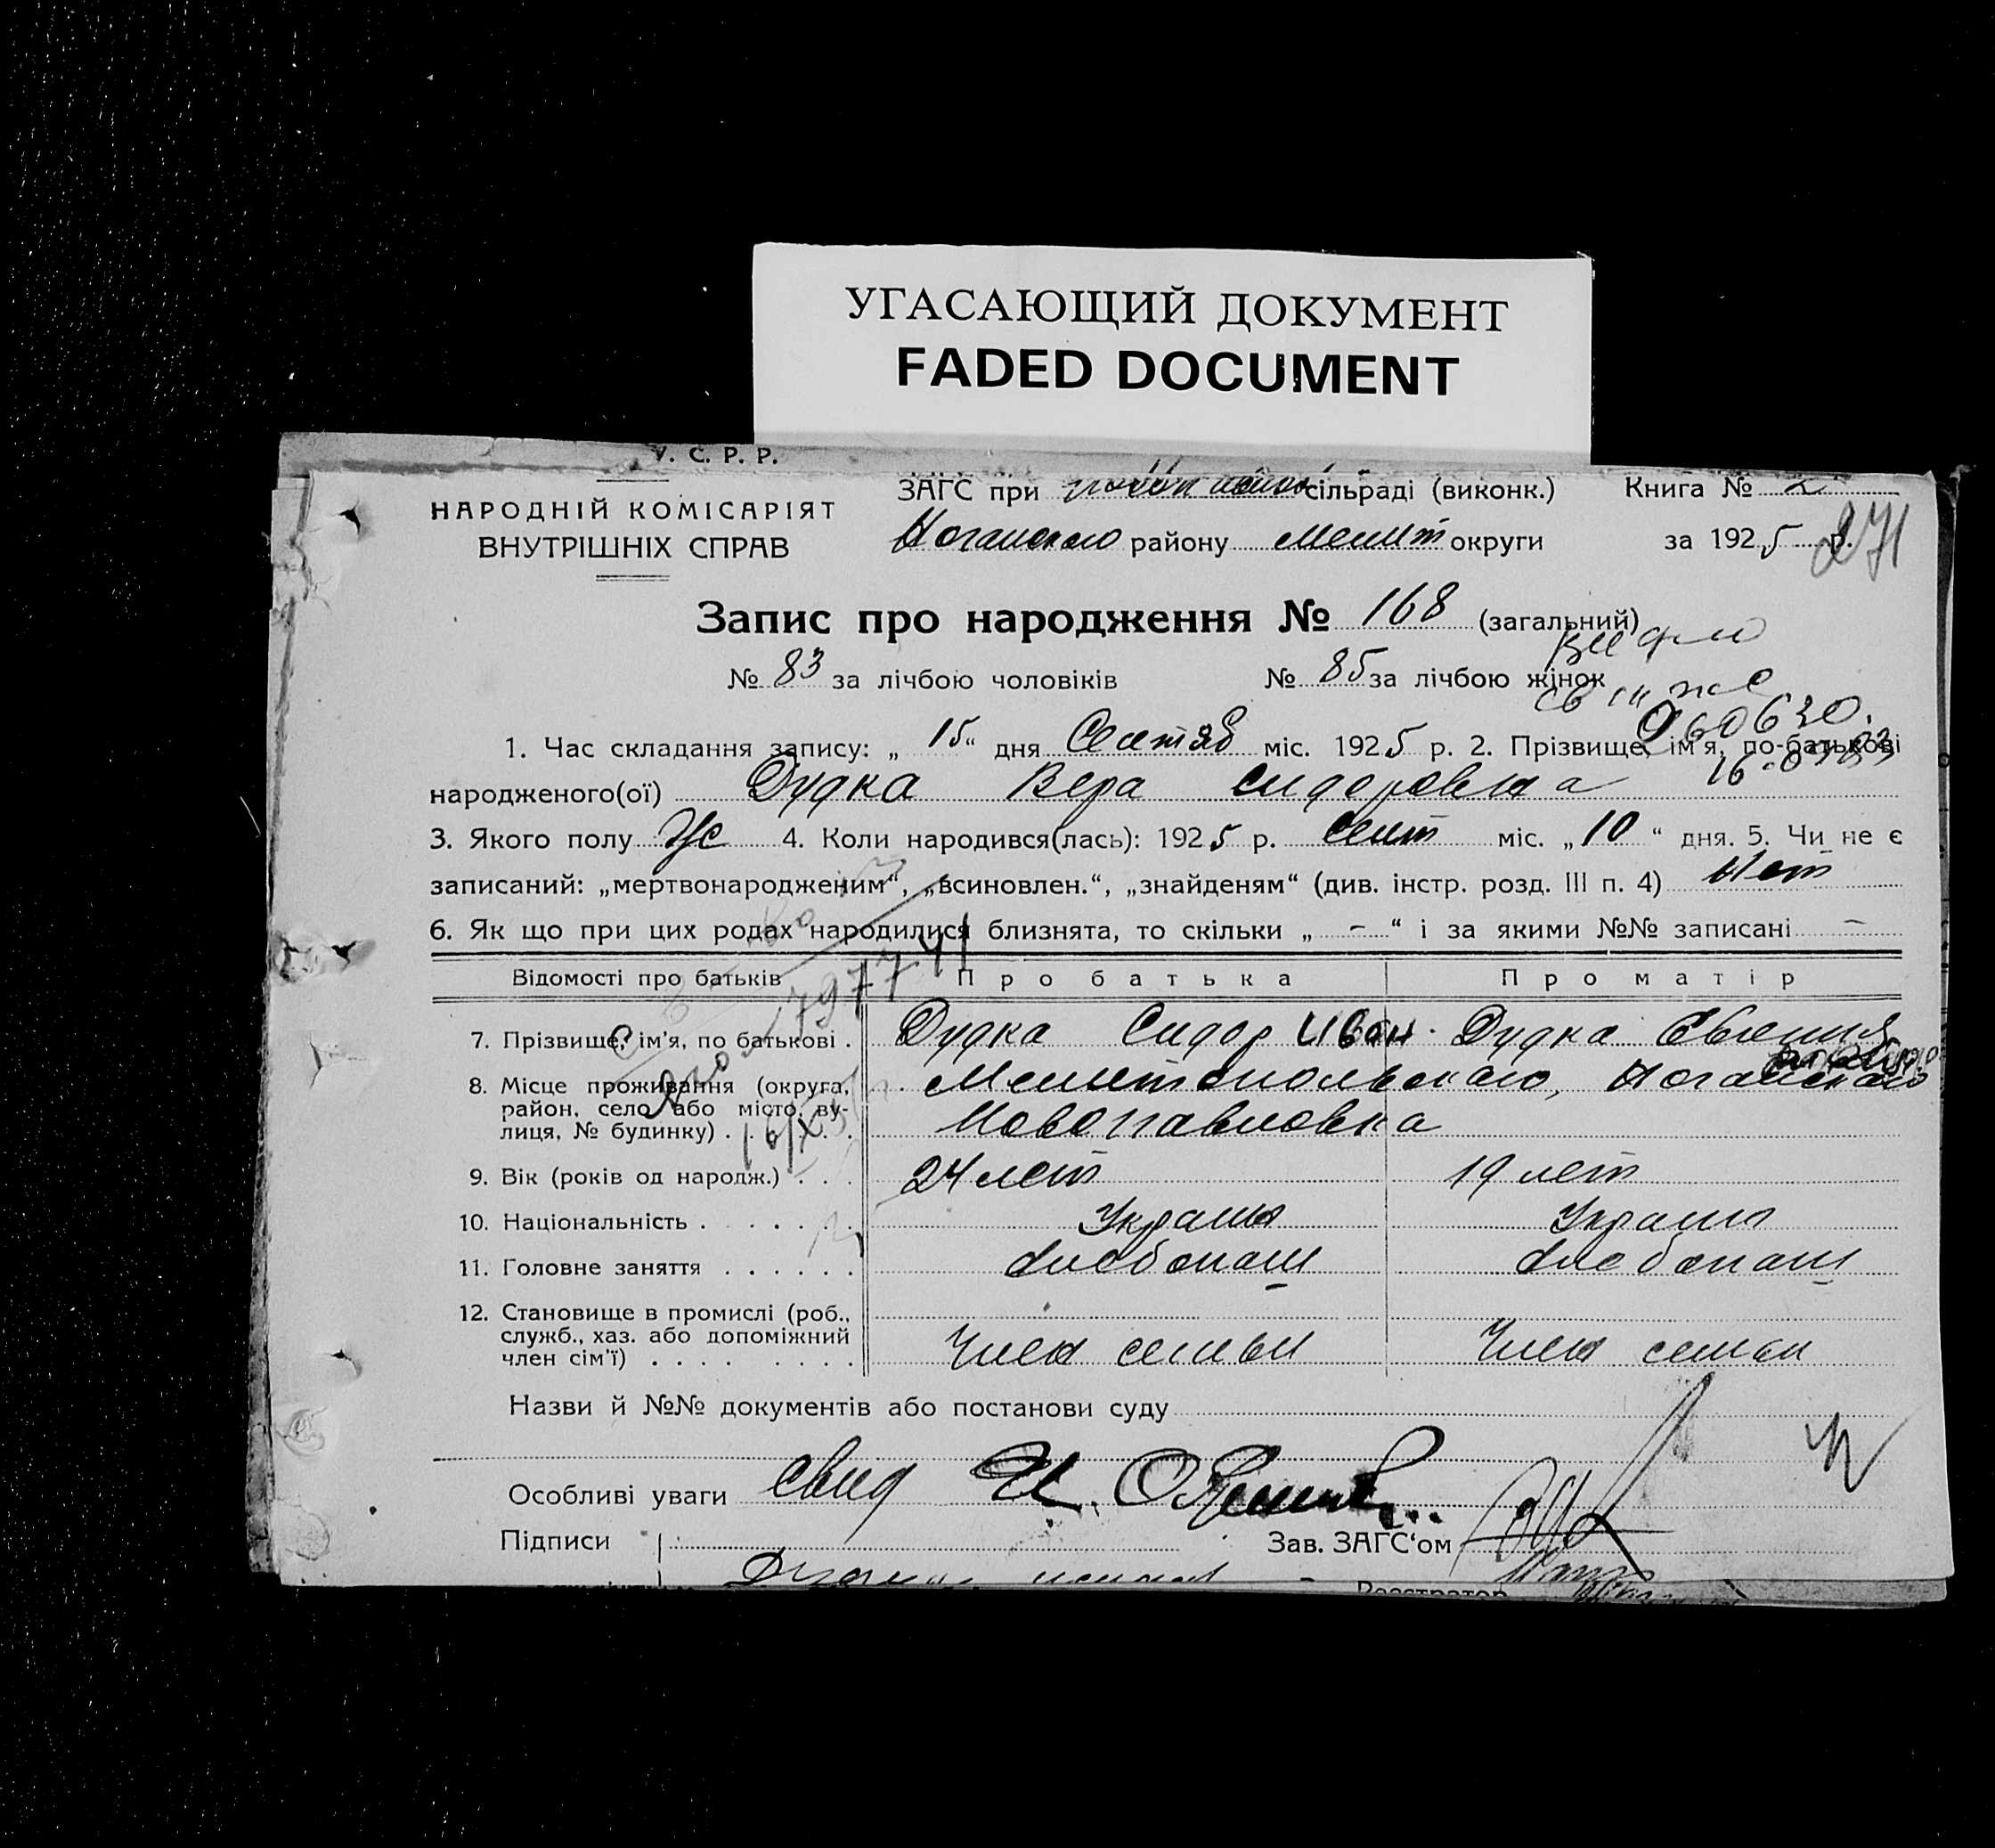 УГАСАЮЩИЙ ДОКУМЕНТ
FADED DOCUMENT
У. С. Р. Р.
НАРОДНІЙ КОМІСАРІЯТ
ВНУТРІШНІХ СПРАВ
ЗАГС при сільраді (виконк.) Книга № 2
Ногайского району Мелит округи за 1925 р.
271
Запис про народження № 168 (загальний)
№ 83 за лічбою чоловіків № 85 за лічбою жінок
1. Час складання запису: „ 15 “ дня Сентяб міс. 1925 р. 2. Прізвище, ім'я, по-батькові
народженого(ої) Дудка Вера Сидоровна
3. Якого полу Ж 4. Коли народився(лась): 1925 р. Сент міс. „ 10 “ дня. 5. Чи не є
записаний: „мертвонародженим“, „всиновлен.“, „знайденям“ (див. інстр. розд. III п. 4) Нет
6. Як що при цих родах народилися близнята, то скільки „ - “ і за якими №№ записані -
Відомості про батьків Про батька Про матір
7. Прізвище, ім'я, по батькові . Дудка Сидор Иван. Дудка Евгения
8. Місце проживання (округа, район, село або місто, вулиця, № будинку) . . . Мелитопольского, Ногайского
Новопавловка
9. Вік (років од народж.) . . . 24 лет 19 лет
10. Національність . . . . . . Украин Украин
11. Головне заняття . . . . . . хлебопаш хлебопаш
12. Становище в промислі (роб., служб., хаз. або допоміжний член сім'ї) . . . . . . . . Член семьи Член семьи
Назви й №№ документів або постанови суду
Особливі уваги свид
Підписи Зав. ЗАГС'ом
Реєстратор